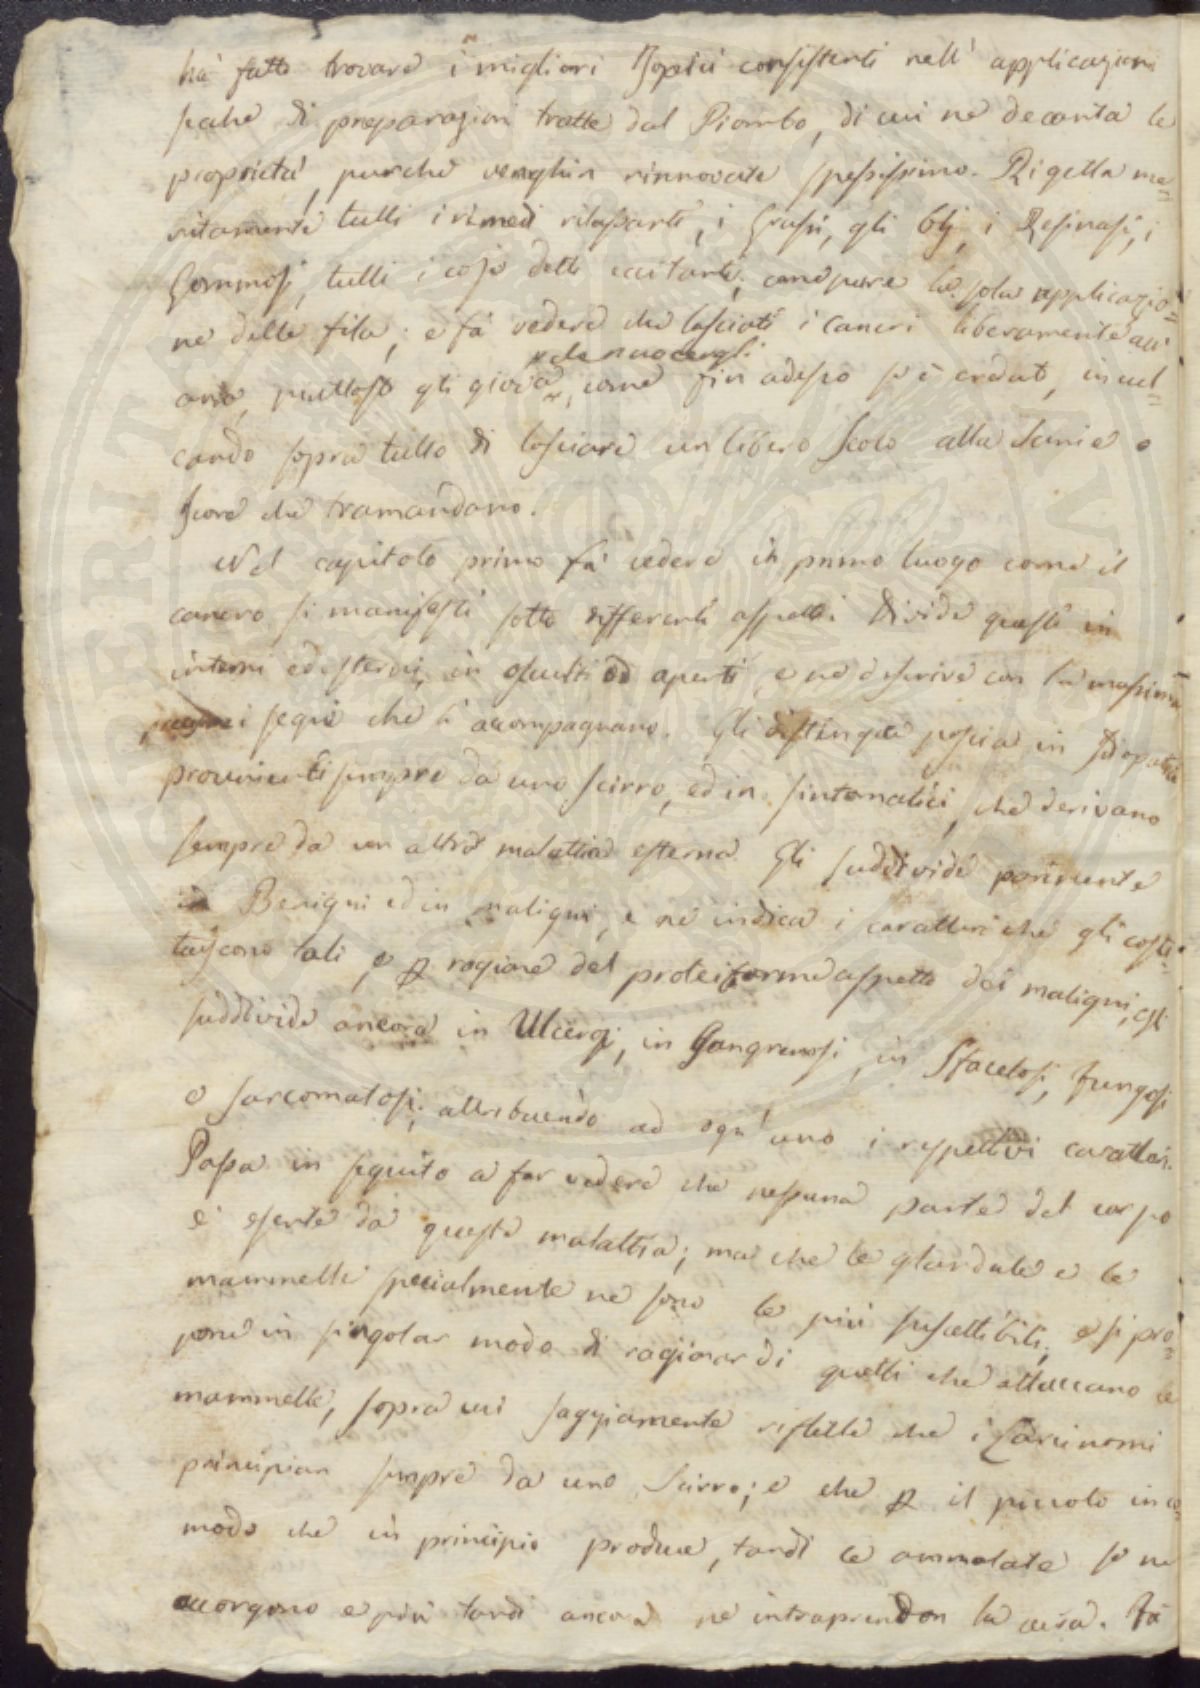 hà fatto trovare i migliori Topici consistenti nell' applicazione
di preparazioni tratte dal Piombo, di cui ne decanta le
proprietà, purchè venghin rinnovate spessissimo. Rigetta me=
ritamente tutti i rimedi rilassanti, i Grassi, gli Olj, i Resinosi, i
Gommosi, tutti i così detti irritanti, come pure la sola applicazio=
ne delle fila; e fà vedere che lasciati i cancri liberamente all'
aria, piuttosto gli giova che nuocergli, come fin adesso si è creduto, incul=
cando sopra tutto di lasciare un libero scolo alla Sanie o
Icore che tramandano.
Nel capitolo primo fà vedere in primo luogo come il
cancro si manifesti sotto differenti aspetti Divide questi in
interni ed esterni, in occulti ed aperti, e ne descrive con la massima
i segni che li accompagnano. Gli distingue poscia in Idiopatici
provenienti sempre da uno scirro, ed in sintomatici, che derivano
sempre da un altra malattia esterna. Gli suddivide parimente
in Benigni ed in maligni, e ne indica i caratteri che gli costi=
tuiscono tali, e p ragione del proteiforme aspetto dei maligni, gli
suddivide ancora in Ulcerosi, in Gangrenosi, in Sfacelosi, Fungosi
o sarcomatosi; attribuendo ad ogn' uno i rispettivi caratteri.
Passa in seguito a far vedere che nessuna parte del corpo
è esente da questa malattia; ma che le glandule e le
mammelle specialmente ne sono le più suscettibili; e si pro=
pone in singolar modo di ragionar di quelli che attaccano le
mammelle, sopra cui saggiamente riflette che i Carcinomi
principian sempre da uno Scirro; e che p il piccolo inco=
modo che in principio produce, tardi le ammalate se ne
accorgono e più tardi ancora ne intraprendon la cura. Fà